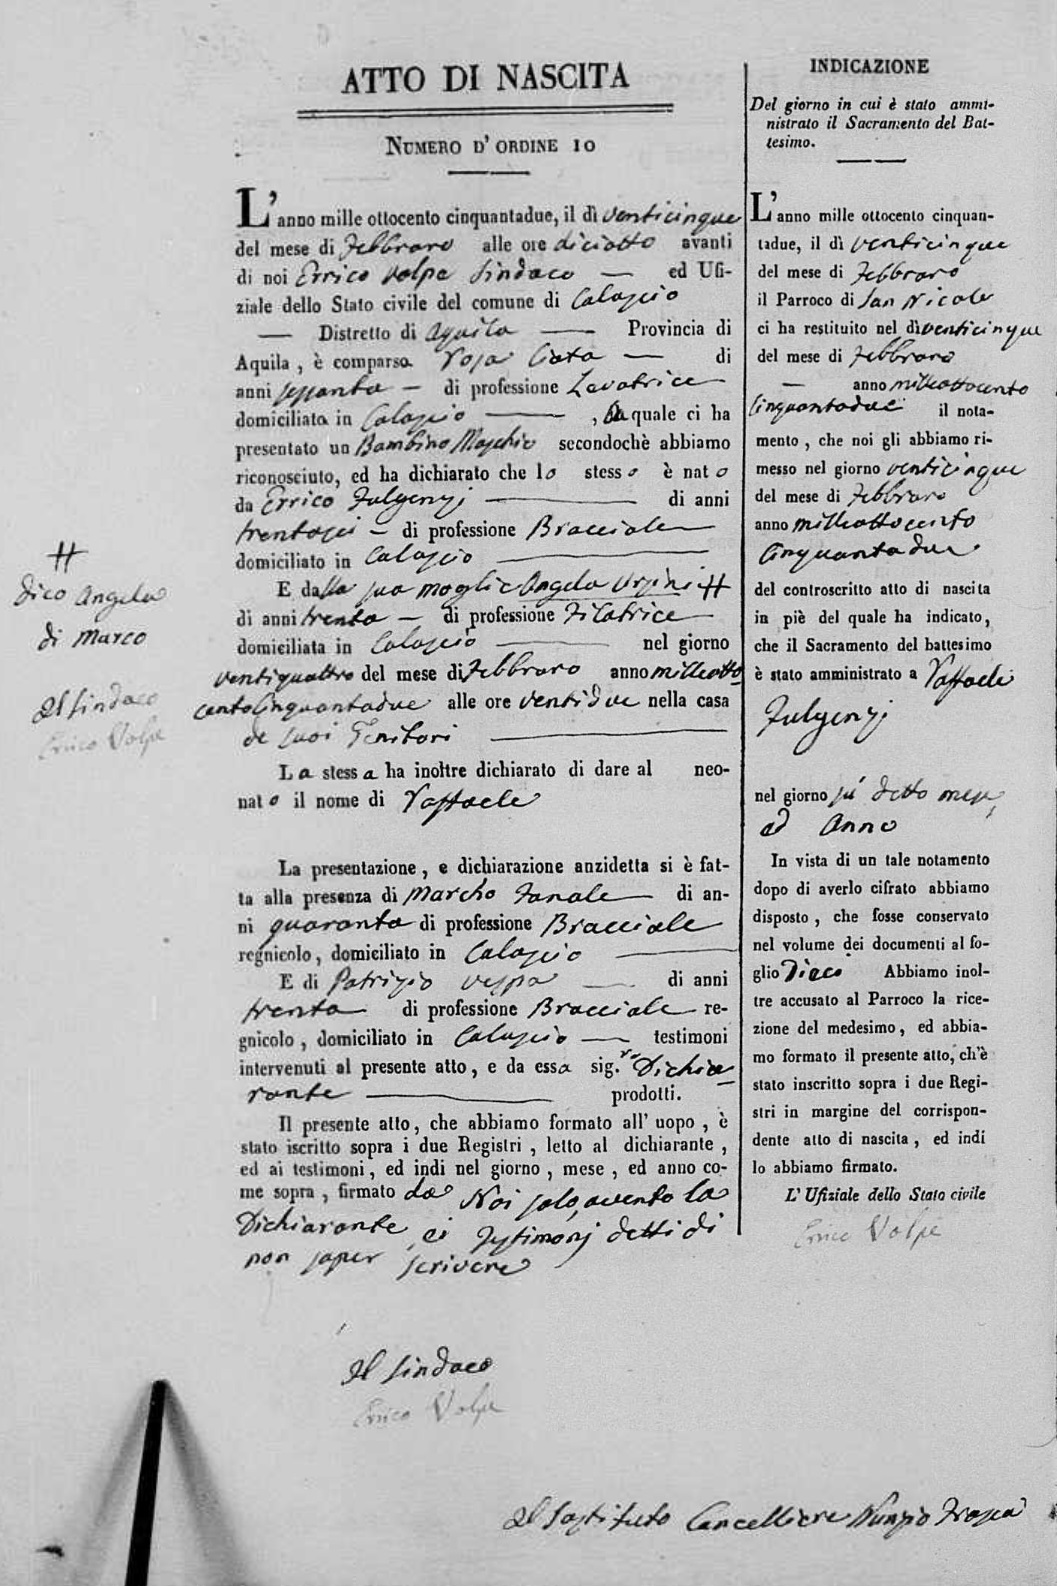 ATTO DI NASCITA
NUMERO D' ORDINE 10
L' anno mille ottocento cinquantadue, il dì venticinque
del mese di Febbraro alle ore diciotto avanti
di noi Errico Volpe Sindaco — ed Ufi-
ziale dello Stato civile del comune di Calascio
— Distretto di Aquila — Provincia di
Aquila, è comparsa Rosa — di
anni sessanta — di professione Levatrice
domiciliata in Calascio — , la quale ci ha
presentato un Bambino Maschio secondochè abbiamo
riconosciuto, ed ha dichiarato che lo stesso è nato
da Errico Fulgenzj — di anni
trentasei — di professione Bracciale
domiciliato in Calascio —
E dalla sua moglie Angela Ursini #
di anni trenta — di professione Filatrice
domiciliata in Calascio — nel giorno
ventiquattro del mese di Febbraro anno milleotto
cento Cinquantadue alle ore ventidue nella casa
de suoi Genitori —
La stessa ha inoltre dichiarato di dare al neo-
nato il nome di Raffaele
La presentazione, e dichiarazione anzidetta si è fat-
ta alla presenza di Marcho Fanale — di an-
ni quaranta di professione Bracciale
regnicolo, domiciliato in Calascio —
E di Patrizio Vespa — di anni
trenta di professione Bracciale re-
gnicolo, domiciliato in Calascio — testimoni
intervenuti al presente atto, e da essa sig.ra Dichia
rante — prodotti.
Il presente atto, che abbiamo formato all' uopo, è
stato iscritto sopra i due Registri, letto al dichiarante,
ed ai testimoni, ed indi nel giorno, mese, ed anno co-
me sopra, firmato da Noi solo, avento la
Dichiarante, ei Testimonj detti di
non saper scrivere
Il Sindaco
Errico Volpe
Il Sostituto Cancelliere Nunzio Frasca
#
Dico Angela
di Marco
Il Sindaco
Errico Volpe
INDICAZIONE
Del giorno in cui è stato ammi-
nistrato il Sacramento del Bat-
tesimo.
L' anno mille ottocento cinquan-
tadue, il dì venticinque
del mese di Febbraro
il Parroco di San Nicola
ci ha restituito nel dì venticinque
del mese di Febbraro
— anno milleottocento
Cinquantadue il nota-
mento, che noi gli abbiamo ri-
messo nel giorno venticinque
del mese di Febbraro
anno milleottocento
Cinquantadue
del controscritto atto di nascita
in piè del quale ha indicato,
che il Sacramento del battesimo
è stato amministrato a Raffaele
Fulgenzj
nel giorno sù detto mese,
ed Anno
In vista di un tale notamento
dopo di averlo cifrato abbiamo
disposto, che fosse conservato
nel volume dei documenti al fo-
glio Dieci Abbiamo inol-
tre accusato al Parroco la rice-
zione del medesimo, ed abbia-
mo formato il presente atto, ch'è
stato inscritto sopra i due Regi-
stri in margine del corrispon-
dente atto di nascita, ed indi
lo abbiamo firmato.
L' Ufiziale dello Stato civile
Errico Volpe